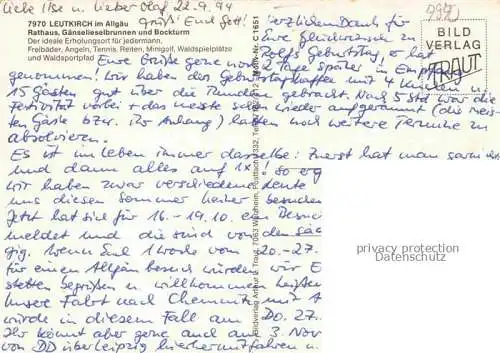 Liebe Ilse u. lieber Olaf 22.9.94
7970 LEUTKIRCH im Allgäu Grüß' Euch Gott!
Rathaus, Gänselieselbrunnen und Bockturm
Der ideale Erholungsort für jedermann.
Freibäder, Angeln, Tennis, Reiten, Minigolf, Waldspielplätze
und Waldsportpfad
Herzlichen Dank für
Eure Glückwünsche zu
Rolfs Geburtstag, er hat
Eure Grüße gerne noch 2 Tage später in Empfang
genommen! Wir haben den Geburtstagskaffee mit 4 Kindern u.
15 Gästen gut über die Runden gebracht. Nach 5 Std war die
Festivität vorbei + das meiste schon wieder aufgeräumt (die meis-
ten Gäste bzw. ihr Anhang) hatten noch weitere Termine zu
absolvieren.
Es ist im Leben immer dasselbe: Zuerst hat man
und dann alles auf 1x! So erg
wir haben zwar verschiedene Leute
uns diesen Sommer hierher besuchen
Jetzt hat sich für 16.-19.10. ein Besuch
meldet und die sind von den
gig. Wenn Euch 1 Woche vom 20.-27.
für einen Allgäu besuch würden wir E
stetten begrüßen u. willkommen heißen
Unsere Fahrt nach Chemnitz mit A
würde in diesem Fall am Do. 27.
Ihr könnt aber gerne auch am 3. Nov
von DD über Leipzig hierher mitfahren u.
994
BILD
VERLAG
TRAUT
Bildverlag Arthur F. Traut, 7063 Welzheim, Postfach 1332, Tel.
Mehr-Nr. C 1651
privacy protection
Datenschutz